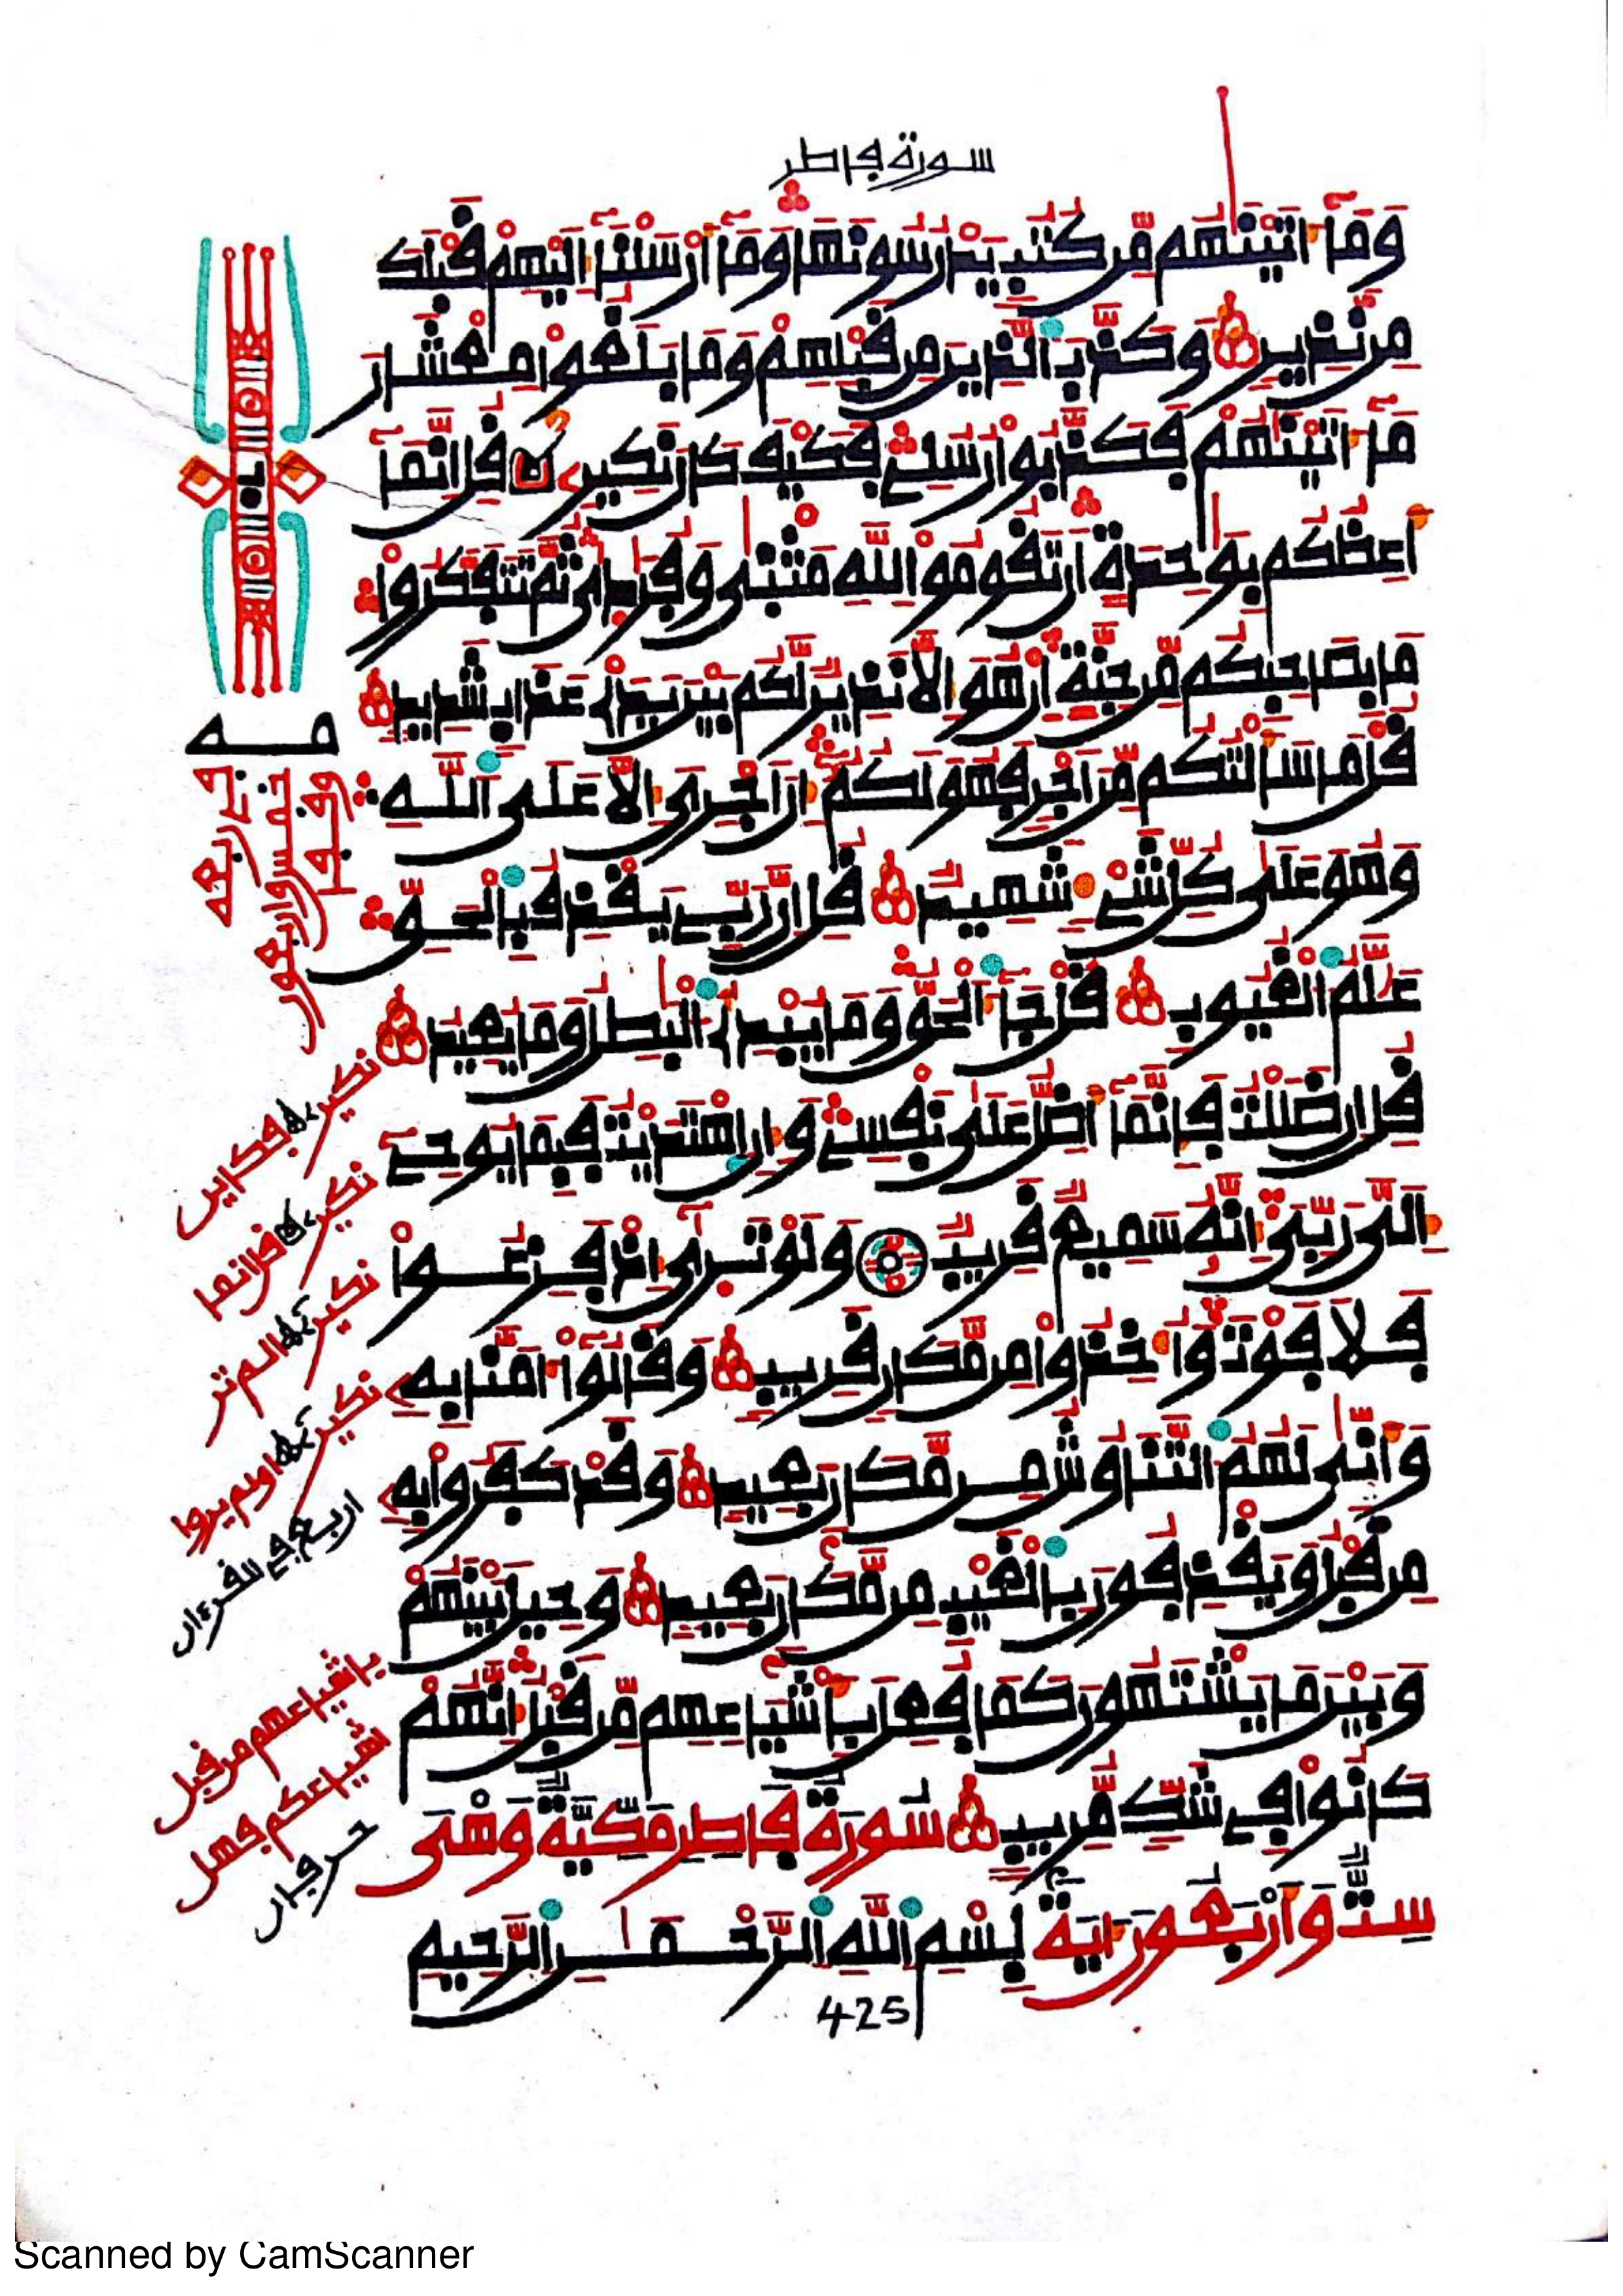 سورة فاطر
وَمَآ ءَاتَيْنَٰهُم مِّن كُتُبٍ يَدْرُسُونَهَا وَمَآ أَرْسَلْنَآ إِلَيْهِمْ قَبْلَكَ
مِن نَّذِيرٍ وَكَذَّبَ ٱلَّذِينَ مِن قَبْلِهِمْ وَمَا بَلَغُواْ مِعْشَارَ
مَآ ءَاتَيْنَٰهُمْ فَكَذَّبُواْ رُسُلِي فَكَيْفَ كَانَ نَكِيرِۦ قُلْ إِنَّمَآ
أَعِظُكُم بِوَٰحِدَةٍ أَن تَقُومُواْ لِلهِ مَثْنَىٰ وَفُرَٰدَىٰ ثُمَّ تَتَفَكَّرُواْ
مَا بِصَاحِبِكُم مِّن جِنَّةٍ إِنْ هُوَ إِلَّا نَذِيرٌ لَّكُم بَيْنَ يَدَيْ عَذَابٍ شَدِيدٍ
قُلْ مَا سَأَلْتُكُم مِّنْ أَجْرٍ فَهُوَ لَكُمْ إِنْ أَجْرِيَ إِلَّا عَلَى ٱللَّهِ
وَهُوَ عَلَىٰ كُلِّ شَيْءٍ شَهِيدٌ قُلْ إِنَّ رَبِّي يَقْذِفُ بِٱلْحَقِّ
عَلَّٰمُ ٱلْغُيُوبِ قُلْ جَآءَ ٱلْحَقُّ وَمَا يُبْدِئُ ٱلْبَٰطِلُ وَمَا يُعِيدُ
قُلْ إِن ضَلَلْتُ فَإِنَّمَآ أَضِلُّ عَلَىٰ نَفْسِي وَإِنِ ٱهْتَدَيْتُ فَبِمَا يُوحِي
إِلَيَّ رَبِّيَ إِنَّهُۥ سَمِيعٌ قَرِيبٌ وَلَوْ تَرَىٰٓ إِذْ فَزِعُواْ
فَلَا فَوْتَ وَأُخِذُواْ مِن مَّكَانٍ قَرِيبٍ وَقَالُوٓاْ ءَامَنَّا بِهِۦ
وَأَنَّىٰ لَهُمُ ٱلتَّنَاوُشُ مِن مَّكَانٍ بَعِيدٍ وَقَدْ كَفَرُواْ بِهِۦ
مِن قَبْلُ وَيَقْذِفُونَ بِٱلْغَيْبِ مِن مَّكَانٍ بَعِيدٍ وَحِيلَ بَيْنَهُمْ
وَبَيْنَ مَا يَشْتَهُونَ كَمَا فُعِلَ بِأَشْيَاعِهِم مِّن قَبْلُ إِنَّهُمْ
كَانُواْ فِي شَكٍّ مُّرِيبٍ سُورَةُ فَاطِرٍ مَكِّيَّةٌ وَهْىَ
سِتٌّ وَأَرْبَعُونَ ءَايَةً بِسْمِ ٱللَّهِ ٱلرَّحْمَٰنِ ٱلرَّحِيمِ
425
نكير فكاين
نكير قل انما
نكير الم تر
نكير اولم يروا
اربع في القرءان
باشياعهم من قبل
اشياعكم فهل
حرفان
Scanned by CamScanner